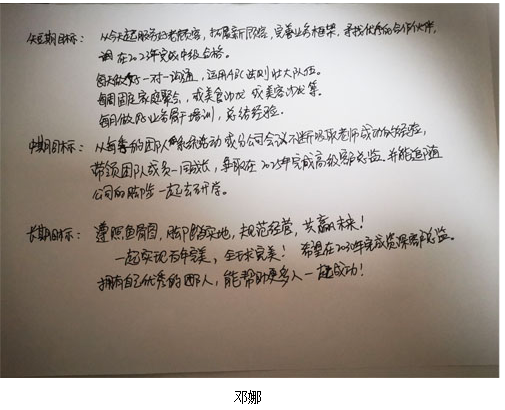 短期目标：从今天起服务好老顾客，拓展新顾客，完善业务框架，寻找优秀的合作伙伴，
在2023年完成中级合格。
每天做好一对一沟通，运用ABC法则壮大队伍。
每周固定家庭聚会，或美食沙龙 或美容沙龙等。
每月做好业务展示 培训，总结经验。
中期目标：从每季的团队系统活动或分公司会议不断吸取老师成功的经验，
带领团队成员一同成长，争取在2025年完成高级客户总监 并能追随
公司的脚步一起去研学。
长期目标：遵照鱼骨图，脚踏实地，规范经营，共赢未来！
一起实现百年完美，全球完美！ 希望在2030年完成资深客户总监。
拥有自己优秀的团队，能帮助更多人一起成功！
邓娜